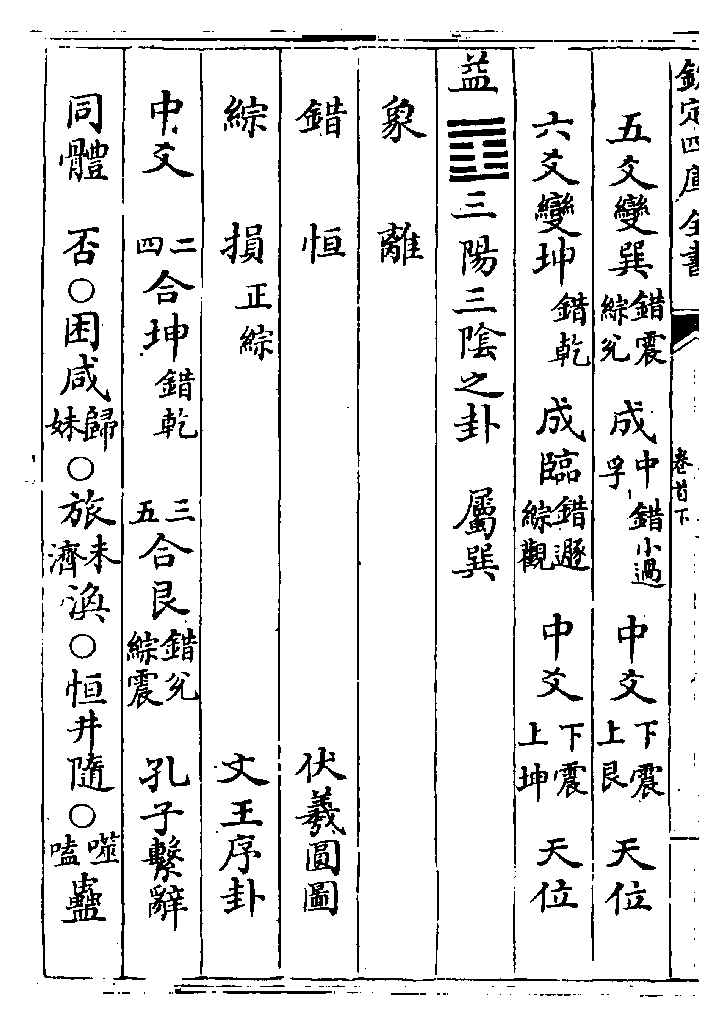 欽定四庫全書
卷首下
五爻變巽錯震綜兌成中孚錯小過中爻下震上艮天位
六爻變坤錯乾成臨錯遯綜觀中爻下震上坤天位
益䷩三陽三陰之卦屬巽
象離
錯恒伏羲圓圖
綜損正綜文王序卦
中爻二四合坤錯乾三五合艮錯兌綜震孔子繫辭
同體否○困咸歸妹○旅未濟渙○恒井隨○噬嗑蠱